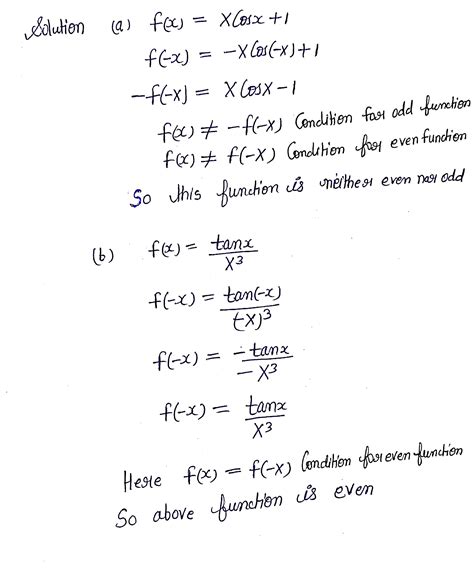 Solution (a) f(x) = xCosx+1
f(-x) = -xCos(-x)+1
-f(-x) = xCosx-1
f(x) ≠ -f(-x) Condition for odd function
f(x) ≠ f(-x) Condition for even function
So this function is neither even nor odd
(b) f(x) = tanx/x³
f(-x) = tan(-x)/(-x)³
f(-x) = -tanx/-x³
f(-x) = tanx/x³
Here f(x) = f(-x) Condition for even function
So above function is even